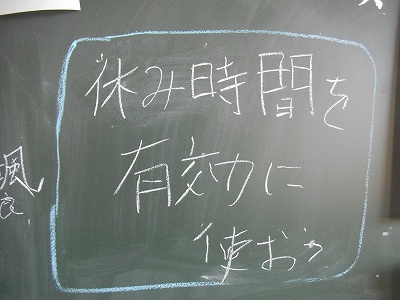 休み時間を
有効に
使おう
颯良